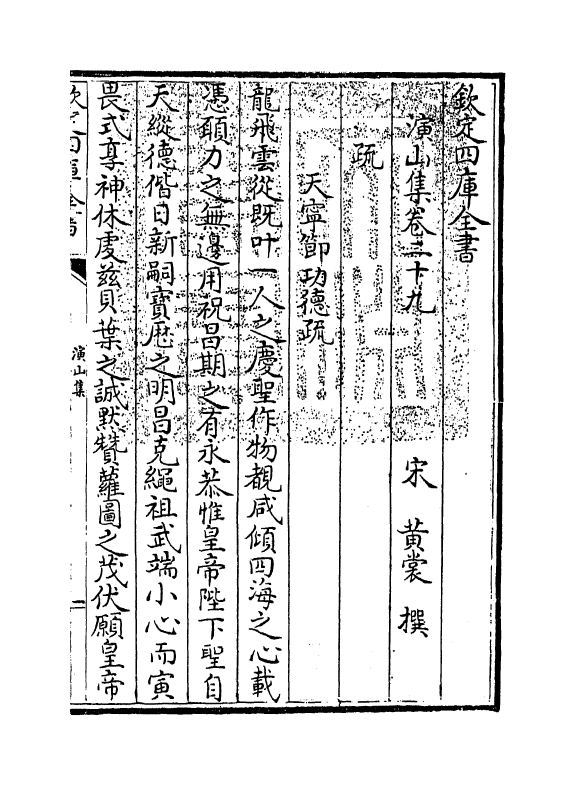 欽定四庫全書
演山集卷三十九
宋 黃裳 撰
疏
天寧節功德疏
龍飛雲從既叶一人之慶聖作物覩咸傾四海之心載
憑願力之無邊用祝昌期之有永恭惟皇帝陛下聖自
天縱德偕日新嗣寶厯之明昌克繩祖武端小心而寅
畏式享神休處兹貝葉之誠默贊蘿圖之茂伏願皇帝
欽定四庫全書
演山集